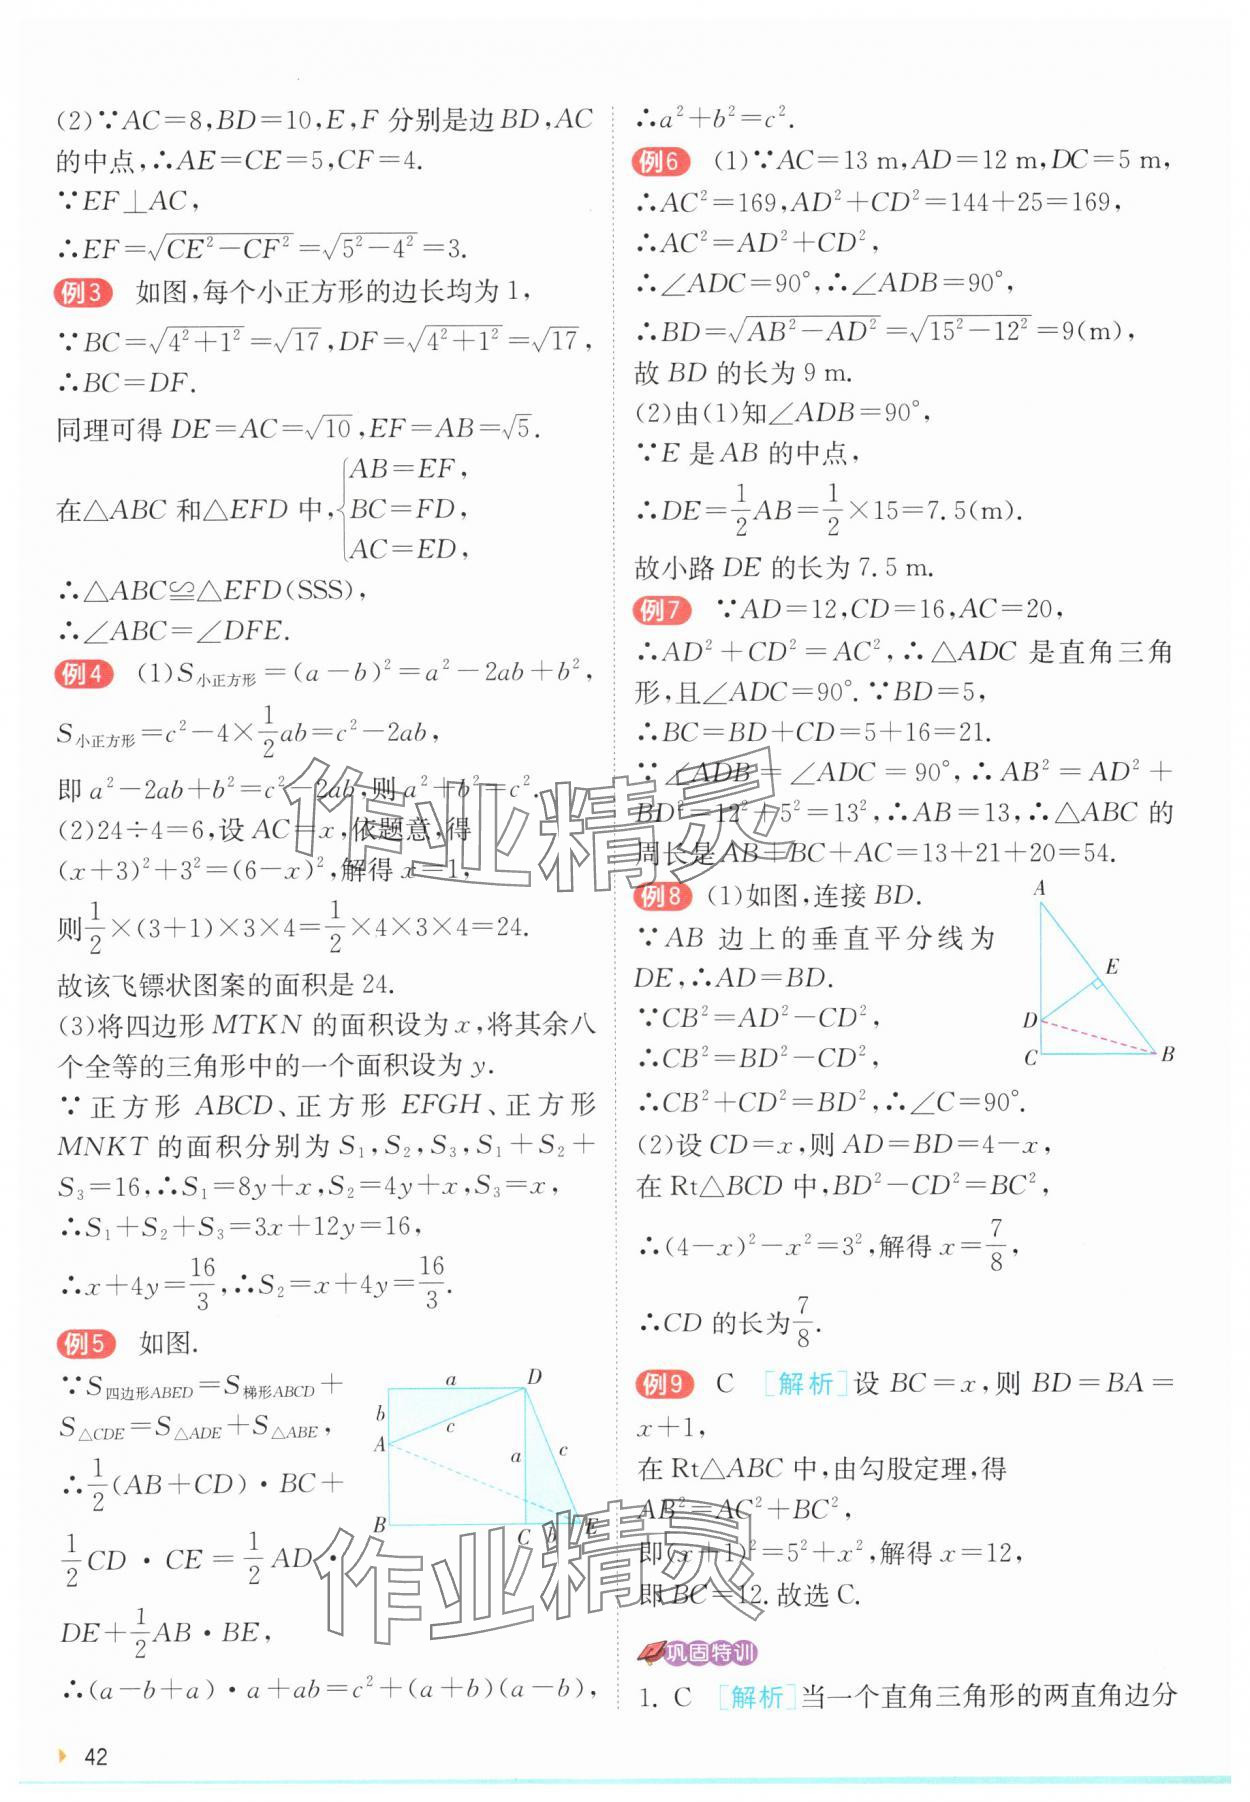 (2)∵AC=8,BD=10,E,F 分别是边BD,AC
的中点,∴AE=CE=5,CF=4.
∵EF⊥AC,
∴EF=√(CE²-CF²)=√(5²-4²)=3.
例3 如图,每个小正方形的边长均为1,
∵BC=√(4²+1²)=√17,DF=√(4²+1²)=√17,
∴BC=DF.
同理可得DE=AC=√10,EF=AB=√5.
在△ABC和△EFD中,{AB=EF,
BC=FD,
AC=ED,
∴△ABC≌△EFD(SSS),
∴∠ABC=∠DFE.
例4 (1)S小正方形=(a-b)²=a²-2ab+b²,
S小正方形=c²-4×1/2ab=c²-2ab,
即a²-2ab+b²=c²-2ab,则a²+b²=c².
(2)24÷4=6,设AC=x,依题意,得
(x+3)²+3²=(6-x)²,解得x=1,
则1/2×(3+1)×3×4=1/2×4×3×4=24.
故该飞镖状图案的面积是24.
(3)将四边形MTKN的面积设为x,将其余八
个全等的三角形中的一个面积设为y.
∵正方形ABCD、正方形EFGH、正方形
MNKT的面积分别为S₁,S₂,S₃,S₁+S₂+
S₃=16,∴S₁=8y+x,S₂=4y+x,S₃=x,
∴S₁+S₂+S₃=3x+12y=16,
∴x+4y=16/3,∴S₂=x+4y=16/3.
例5 如图.
∵S四边形ABED=S梯形ABCD+
S△CDE=S△ADE+S△ABE,
∴1/2(AB+CD)·BC+
1/2CD·CE=1/2AD·
DE+1/2AB·BE,
a
D
b
c
A
a
c
B
C
b
E
∴(a-b+a)·a+ab=c²+(a+b)(a-b),
∴a²+b²=c².
例6 (1)∵AC=13 m,AD=12 m,DC=5 m,
∴AC²=169,AD²+CD²=144+25=169,
∴AC²=AD²+CD²,
∴∠ADC=90°,∴∠ADB=90°,
∴BD=√(AB²-AD²)=√(15²-12²)=9(m),
故BD的长为9 m.
(2)由(1)知∠ADB=90°,
∵E是AB的中点,
∴DE=1/2AB=1/2×15=7.5(m).
故小路DE的长为7.5 m.
例7 ∵AD=12,CD=16,AC=20,
∴AD²+CD²=AC²,∴△ADC是直角三角
形,且∠ADC=90°.∵BD=5,
∴BC=BD+CD=5+16=21.
∵∠ADB=∠ADC=90°,∴AB²=AD²+
BD²=12²+5²=13²,∴AB=13,∴△ABC的
周长是AB+BC+AC=13+21+20=54.
例8 (1)如图,连接BD.
∵AB边上的垂直平分线为
DE,∴AD=BD.
∵CB²=AD²-CD²,
∴CB²=BD²-CD²,
∴CB²+CD²=BD²,∴∠C=90°.
A
E
D
C
B
(2)设CD=x,则AD=BD=4-x,
在Rt△BCD中,BD²-CD²=BC²,
∴(4-x)²-x²=3²,解得x=7/8,
∴CD的长为7/8.
例9 C [解析]设BC=x,则BD=BA=
x+1,
在Rt△ABC中,由勾股定理,得
AB²=AC²+BC²,
即(x+1)²=5²+x²,解得x=12,
即BC=12.故选C.
巩固特训
1. C [解析]当一个直角三角形的两直角边分
42
作业精灵
作业精灵